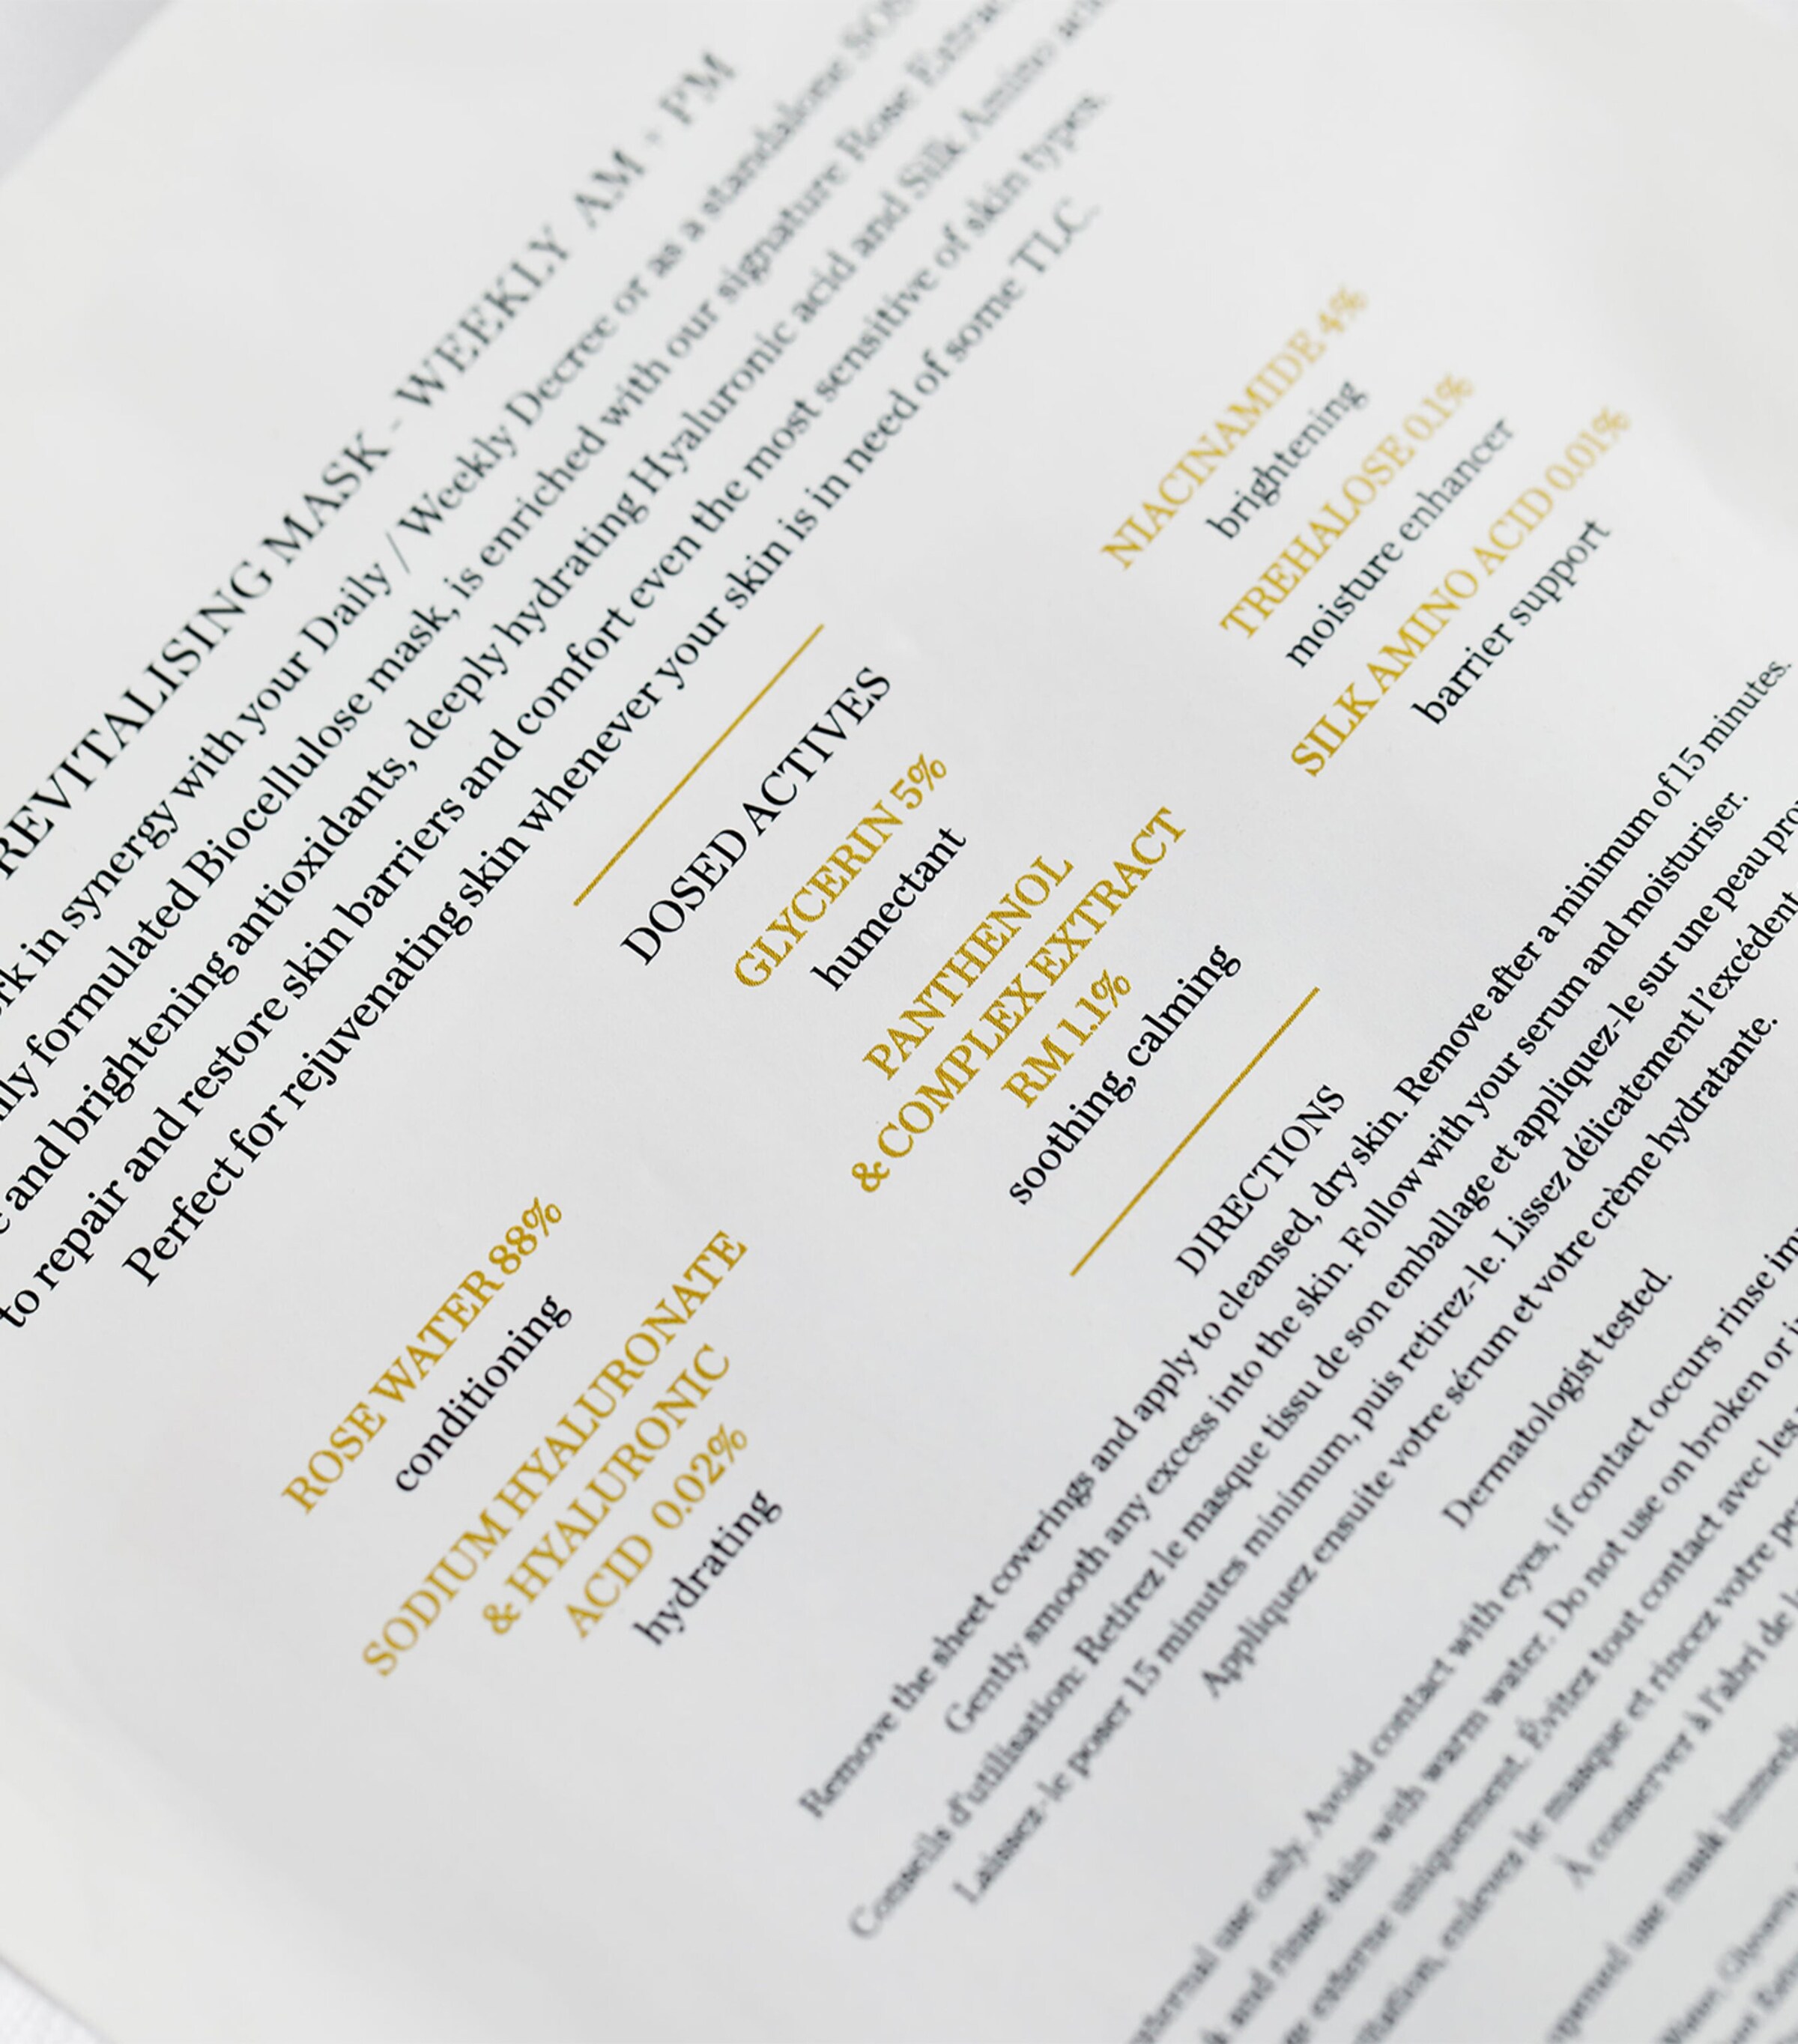 REVITALISING MASK - WEEKLY AM + PM
in synergy with your Daily / Weekly Decree or as a standalone SOS
formulated Biocellulose mask, is enriched with our signature Rose Extract
and brightening antioxidants, deeply hydrating Hyaluronic acid and Silk Amino
to repair and restore skin barriers and comfort even the most sensitive of skin types.
Perfect for rejuvenating skin whenever your skin is in need of some TLC.
DOSED ACTIVES
ROSE WATER 88%
conditioning
SODIUM HYALURONATE
& HYALURONIC
ACID 0.02%
hydrating
GLYCERIN 5%
humectant
PANTHENOL
& COMPLEX EXTRACT
RM 1.1%
soothing, calming
NIACINAMIDE 4%
brightening
TREHALOSE 0.1%
moisture enhancer
SILK AMINO ACID 0.01%
barrier support
DIRECTIONS
Remove the sheet coverings and apply to cleansed, dry skin. Remove after a minimum of 15 minutes.
Gently smooth any excess into the skin. Follow with your serum and moisturiser.
Conseils d'utilisation: Retirez le masque tissu de son emballage et appliquez-le sur une peau
Laissez-le poser 15 minutes minimum, puis retirez-le. Lissez délicatement l'excédent
Appliquez ensuite votre sérum et votre crème hydratante.
Dermatologist tested.
use only. Avoid contact with eyes, if contact occurs rinse
and rinse skin with warm water. Do not use on broken or
externe uniquement. Évitez tout contact avec les
enlevez le masque et rincez votre
À conserver à l'abri de
use mask